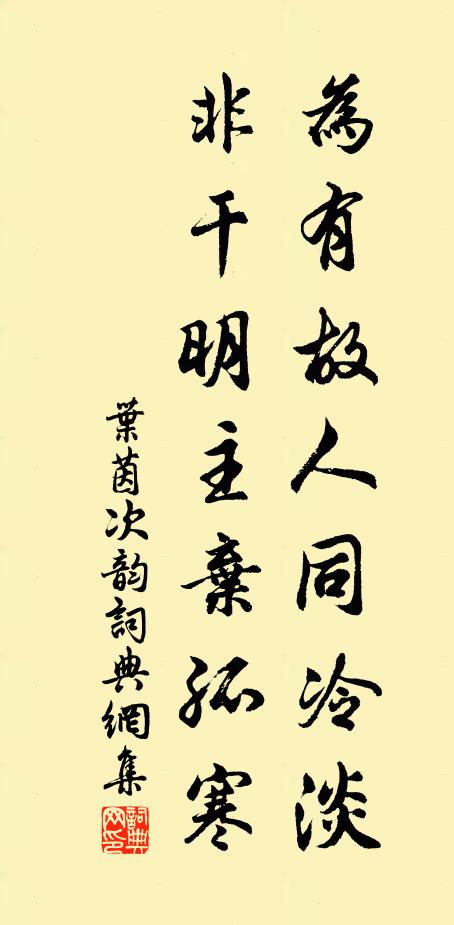 為有故人同冷淡
非干明主棄孤寒
葉茵次韵詞典網集
詞典
网印